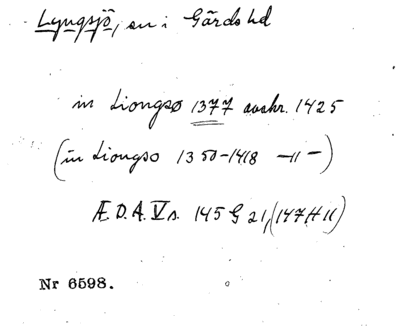 Lyngsjö, sn i Gärds hd
in Liongsø 1377 avskr. 1425
(in Liongso 1350-1418 -"-)
Æ.D.A. V s. 145 G 21, (147 H 11)
Nr 6598.